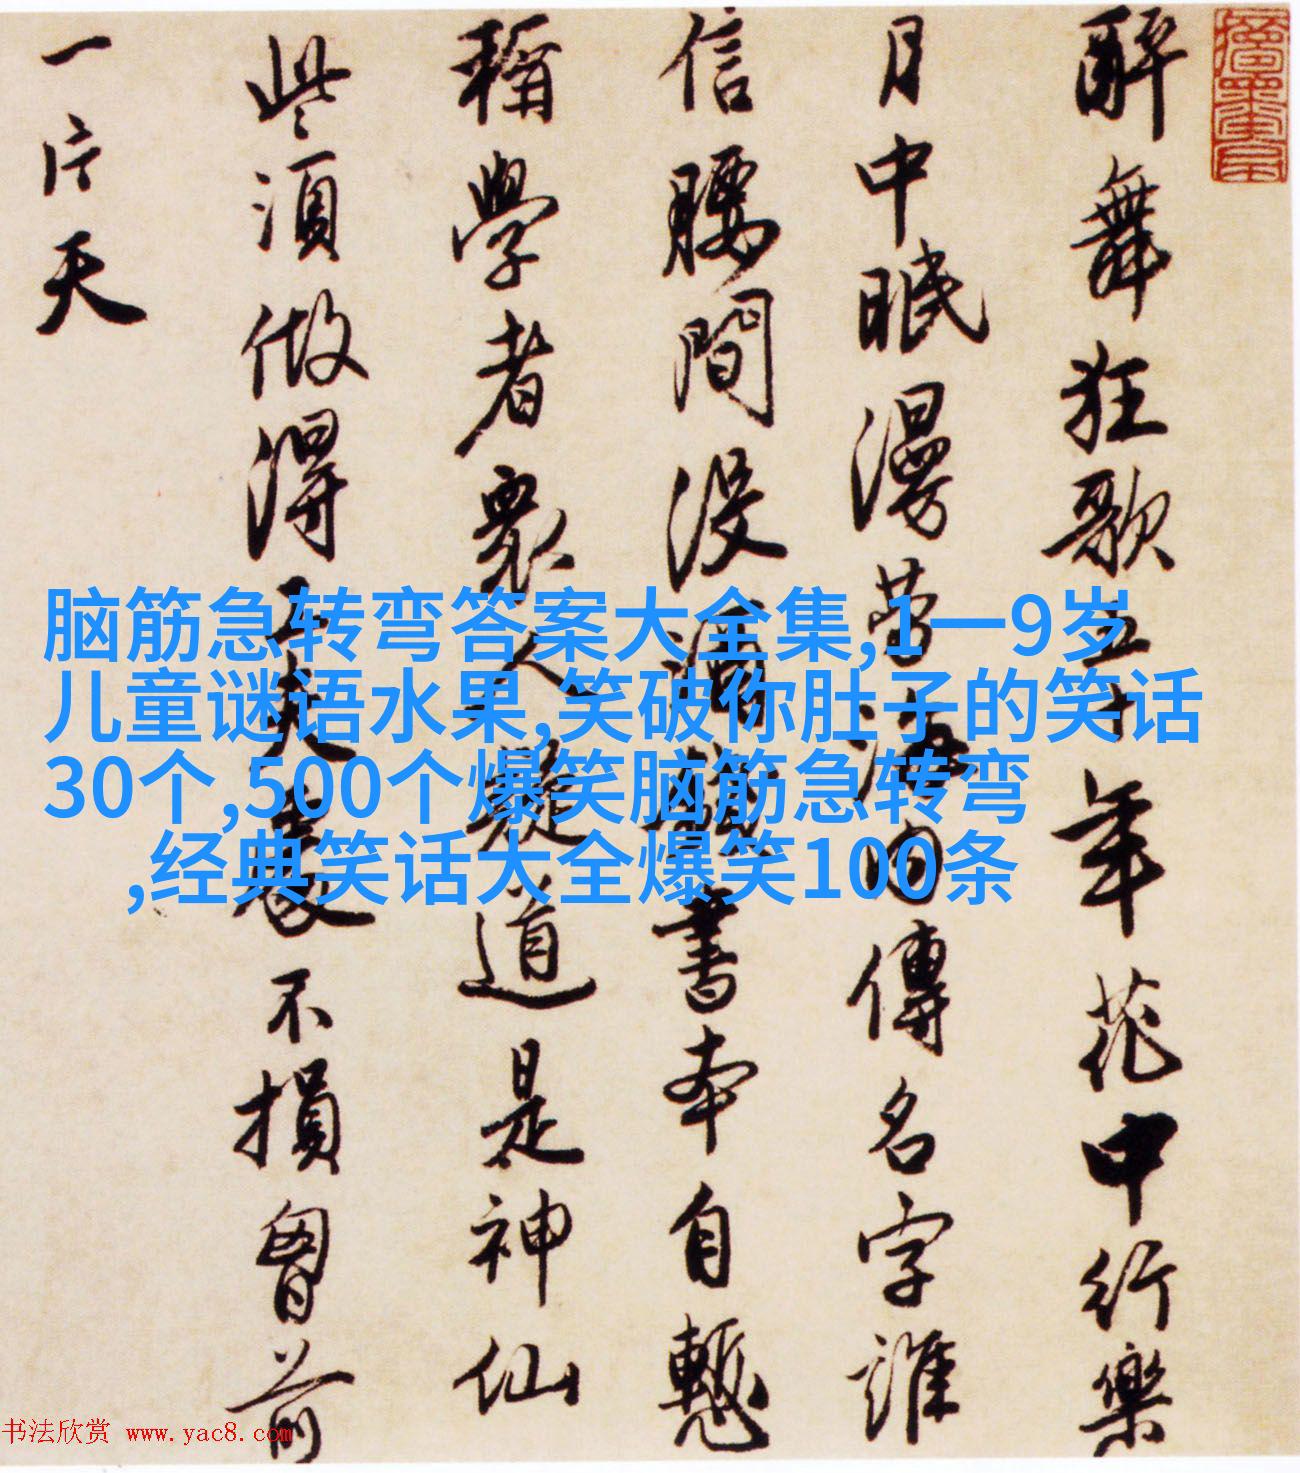 醉舞狂歌五十年花中行樂
月中眠漫勞海內傳名字誰
信腰間沒酒錢書本自慙
稱學者眾人疑道是神仙
些須做得工夫處不損胷前
一片天
脑筋急转弯答案大全集,1一9岁
儿童谜语水果,笑破你肚子的笑话
30个,500个爆笑脑筋急转弯
,经典笑话大全爆笑100条
书法欣赏 www.yac8.com